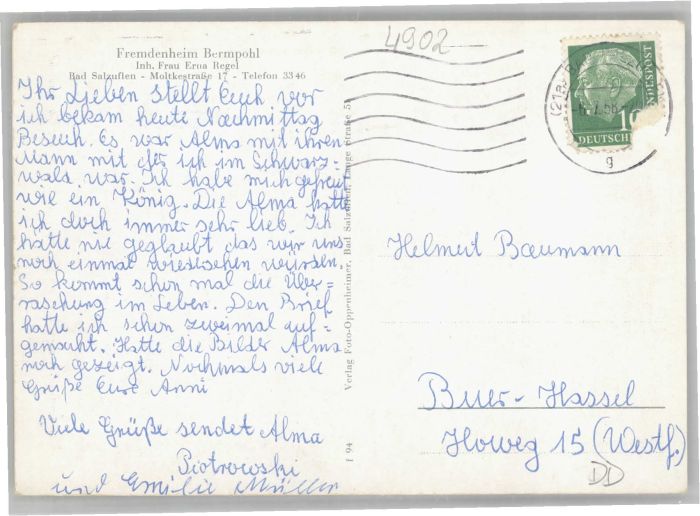 Fremdenheim Bermpohl
Inh. Frau Erna Regel
Bad Salzuflen - Moltkestraße 17 - Telefon 3346
Ihr Lieben stellt Euch vor
ich bekam heute Nachmittag
Besuch. Es war Alma mit ihren
Mann mit der ich im Schwarz-
wald war. Ich habe mich gefreut
wie ein König. Die Alma hatte
ich doch immer sehr lieb. Ich
hatte nie geglaubt das wir uns
noch einmal wiedersehen würden.
So kommt schon mal die Über=
raschung im Leben. Den Brief
hatte ich schon zweimal auf=
gemacht. Hatte die Bilder Alma
noch gezeigt. Nochmals viele
Grüße Eure Anni
Viele Grüße sendet Alma
Piotrowski
und Emilie Müller
Verlag Foto-Oppenheimer, Bad Salzuflen, Lange Straße 5
f 94
4902
(21a)
g
10
DEUTSCHE
BUNDESPOST
Helmut Baumann
Buer-Hassel
Howeg 15 (Westf.)
DD